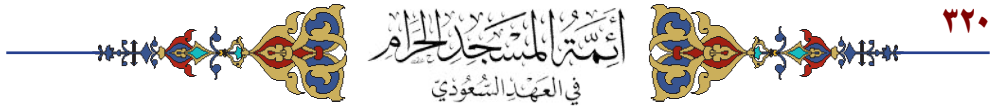 ٣٢٠
أَئِمَّةُ المَسْجِدِ الحَرَامِ
في العَهْدِ السُّعُوْدِيّ